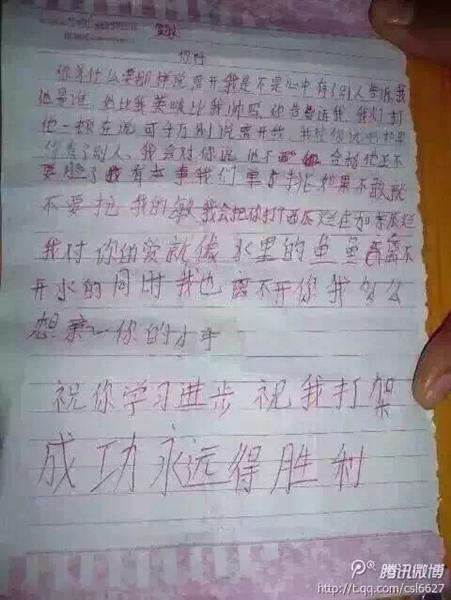 敏
你好
你为什么要那样说离开我是不是心中有了别人告诉我
他是谁 他比我美吗比我帅吗 你告诉我 我们打
他一顿在说 可千万别说离开我
你有了别人、我会对你说 他不 合格他正不
要脸了 我有本事我们单挑 如果不敢就
不要抢 我的敏 我会把你打个西瓜烂在加東瓜烂
我对你的爱就像 水里的鱼 鱼离不
开水的同时 我也离不开你 我多么
想亲一你的小手
祝你学习进步 祝我打架
成功永远得胜利
腾讯微博
http://t.qq.com/csl6627